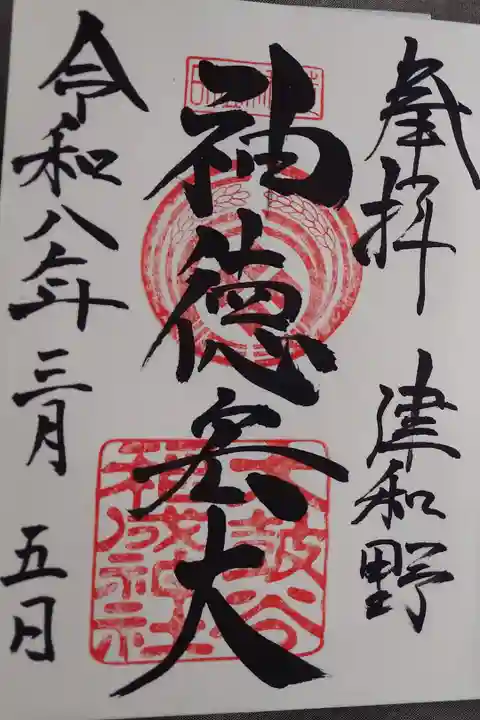 奉拝 津和野
神徳宏大
太皷谷
稲成神社
令和八年三月五日